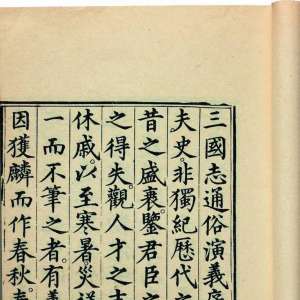 三國志通俗演義序
夫史。非獨紀歷代之
昔之盛衰。鑒君臣之
之得失。觀人才之吉
休戚。以至寒暑災祥
一而不筆之者。有義
因獲麟而作春秋。春